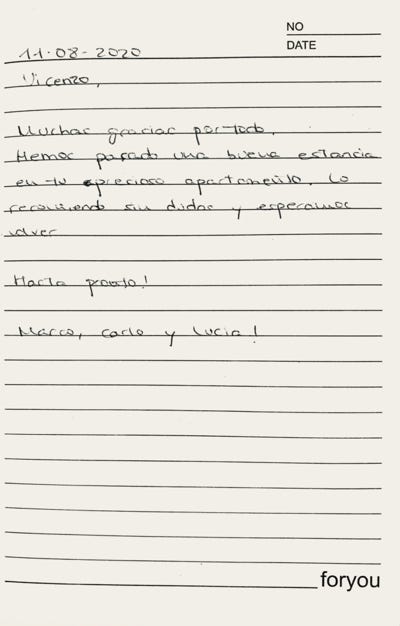 NO
DATE
11-08-2020
Vicenzo,
Muchas gracias por todo.
Hemos pasado una buena estancia
en tu precioso apartamento. Lo
recomiendo sin dudas y esperamos
volver
Hasta pronto!
Marco, Carlo y Lucia!
foryou